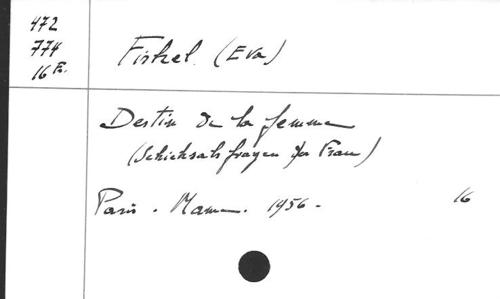 472
774
16 Fr.
Firkel (Eva)
Destin de la femme
(Schicksalsfragen der Frau)
Paris. Mame. 1956 -
16